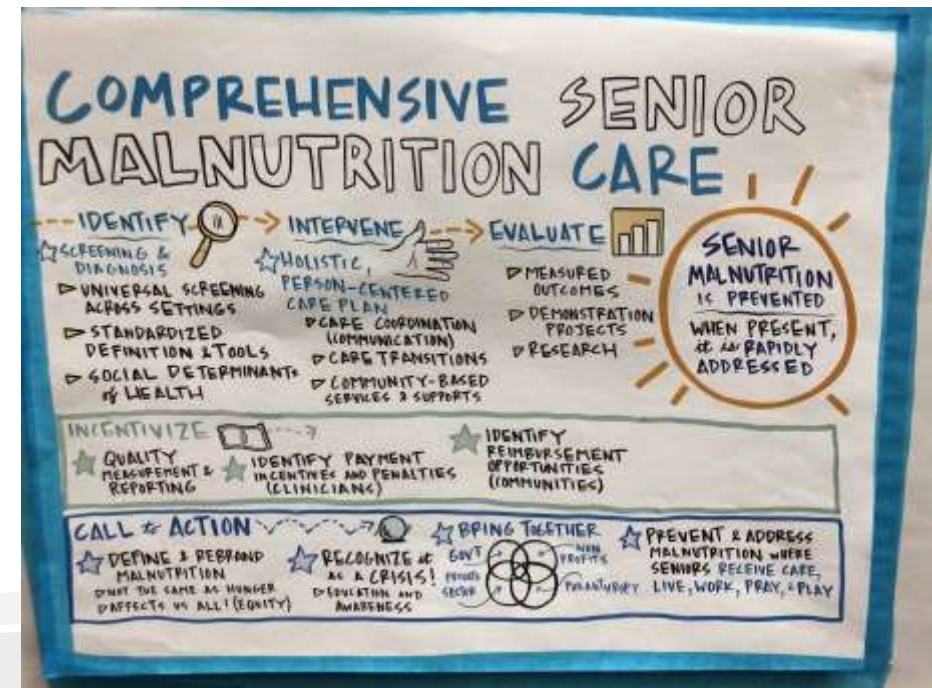 COMPREHENSIVE SENIOR
MALNUTRITION CARE
IDENTIFY
SCREENING &
DIAGNOSIS
UNIVERSAL SCREENING
ACROSS SETTINGS
STANDARDIZED
DEFINITION & TOOLS
SOCIAL DETERMINANTS
of HEALTH
INTERVENE
HOLISTIC,
PERSON-CENTERED
CARE PLAN
CARE COORDINATION
(COMMUNICATION)
CARE TRANSITIONS
COMMUNITY-BASED
SERVICES & SUPPORTS
EVALUATE
MEASURED
OUTCOMES
DEMONSTRATION
PROJECTS
RESEARCH
SENIOR
MALNUTRITION
IS PREVENTED
WHEN PRESENT,
it is RAPIDLY
ADDRESSED
INCENTIVIZE
QUALITY
MEASUREMENT &
REPORTING
IDENTIFY PAYMENT
INCENTIVES AND PENALTIES
(CLINICIANS)
IDENTIFY
REIMBURSEMENT
OPPORTUNITIES
(COMMUNITIES)
CALL to ACTION
DEFINE & REBRAND
MALNUTRITION
NOT THE SAME AS HUNGER
AFFECTS US ALL! (EQUITY)
RECOGNIZE it
AS A CRISIS!
EDUCATION AND
AWARENESS
BRING TOGETHER
GOV'T
PRIVATE
SECTOR
NON
PROFITS
PHILANTHROPY
PREVENT & ADDRESS
MALNUTRITION WHERE
SENIORS RECEIVE CARE,
LIVE, WORK, PRAY, & PLAY